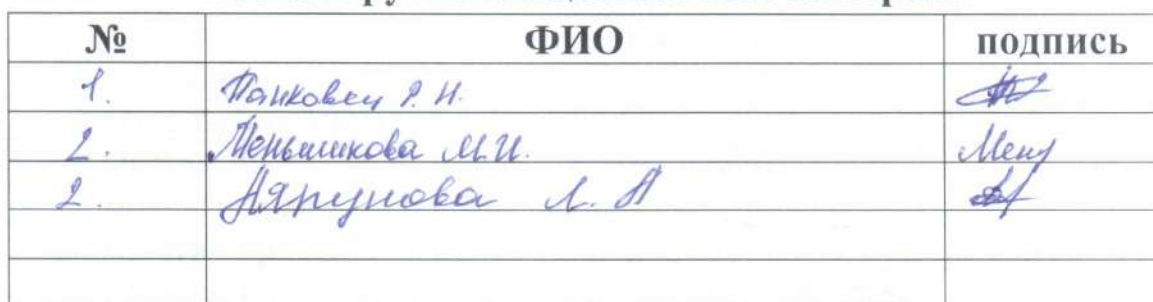 № ФИО подпись
1. Панковец Р. Н.
2. Меньшикова М.И. Мень
2. Ляпунова Л. А